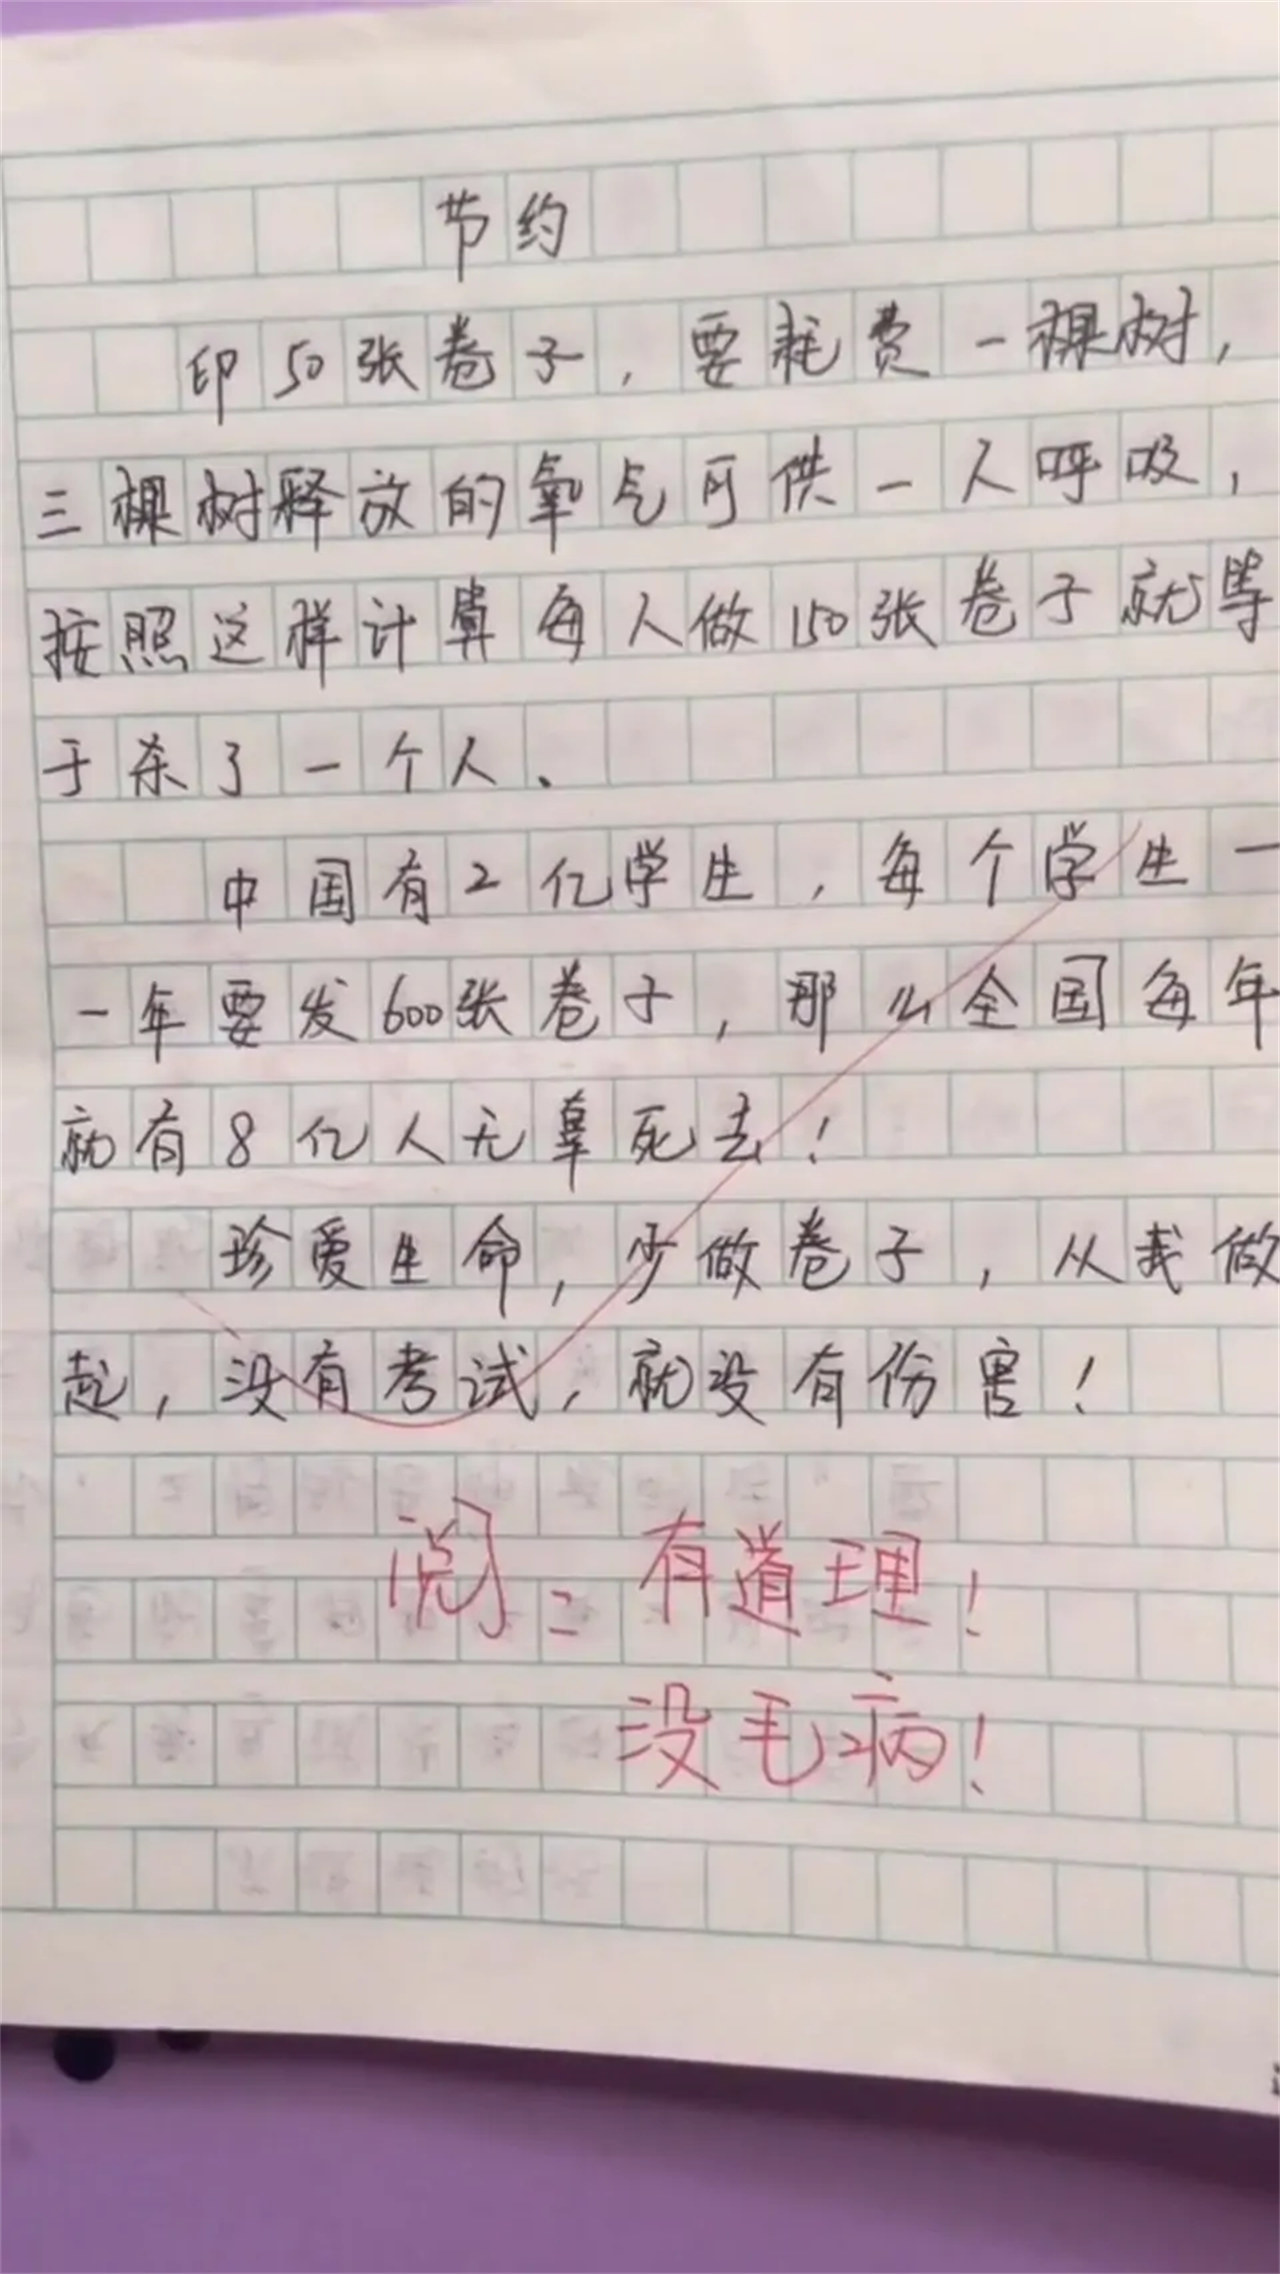 节约
印50张卷子，要耗费一棵树，
三棵树释放的氧气可供一人呼吸，
按照这样计算每人做150张卷子就等
于杀了一个人、
中国有2亿学生，每个学生一
一年要发600张卷子，那么全国每年
就有8亿人无辜死去！
珍爱生命，少做卷子，从我做
起，没有考试，就没有伤害！
阅：有道理！
没毛病！